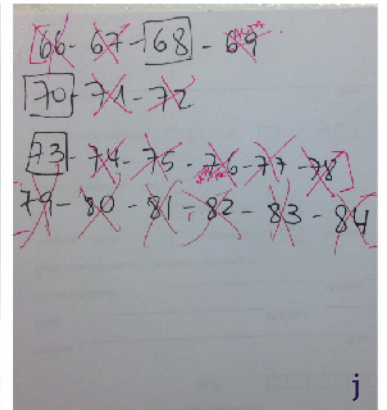 66 - 67 - 68 - 69
70 - 71 - 72
73 - 74 - 75 - 76 - 77 - 78
79 - 80 - 81 - 82 - 83 - 84
j